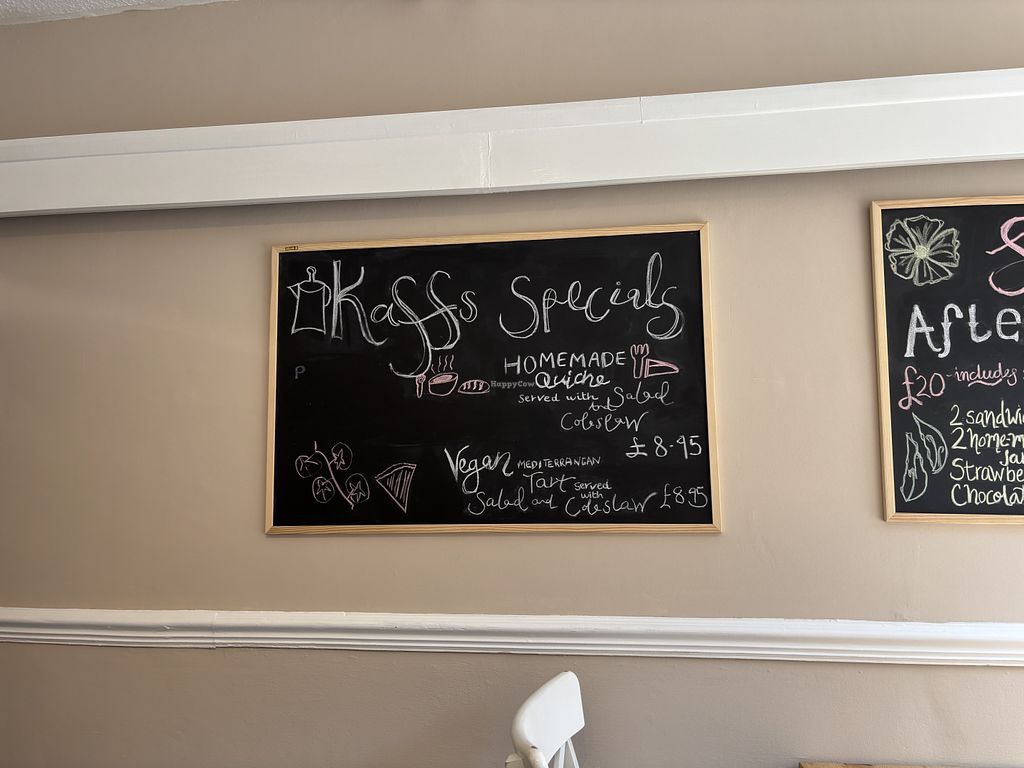 Kaffs Specials
P
HOMEMADE
HappyCow Quiche
served with Salad
and
Coleslaw
£8.95
Vegan MEDITERRANEAN
Tart served
with
Salad and Coleslaw £8.95
Afte
£20 - includes
2 sandwi
2 home-m
Strawbe
Chocola